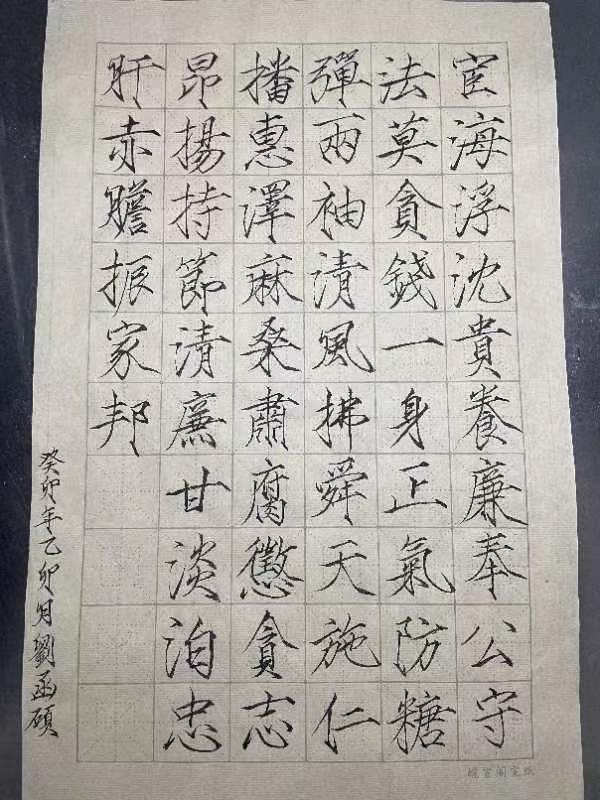 宦海浮沈貴養廉奉公守
法莫貪錢一身正氣防糖
彈兩袖清風拂舜天施仁
播惠澤麻桑肅腐懲貪志
昂揚持節清廉甘淡泊忠
肝赤膽振家邦
癸卯年乙卯月劉函碩